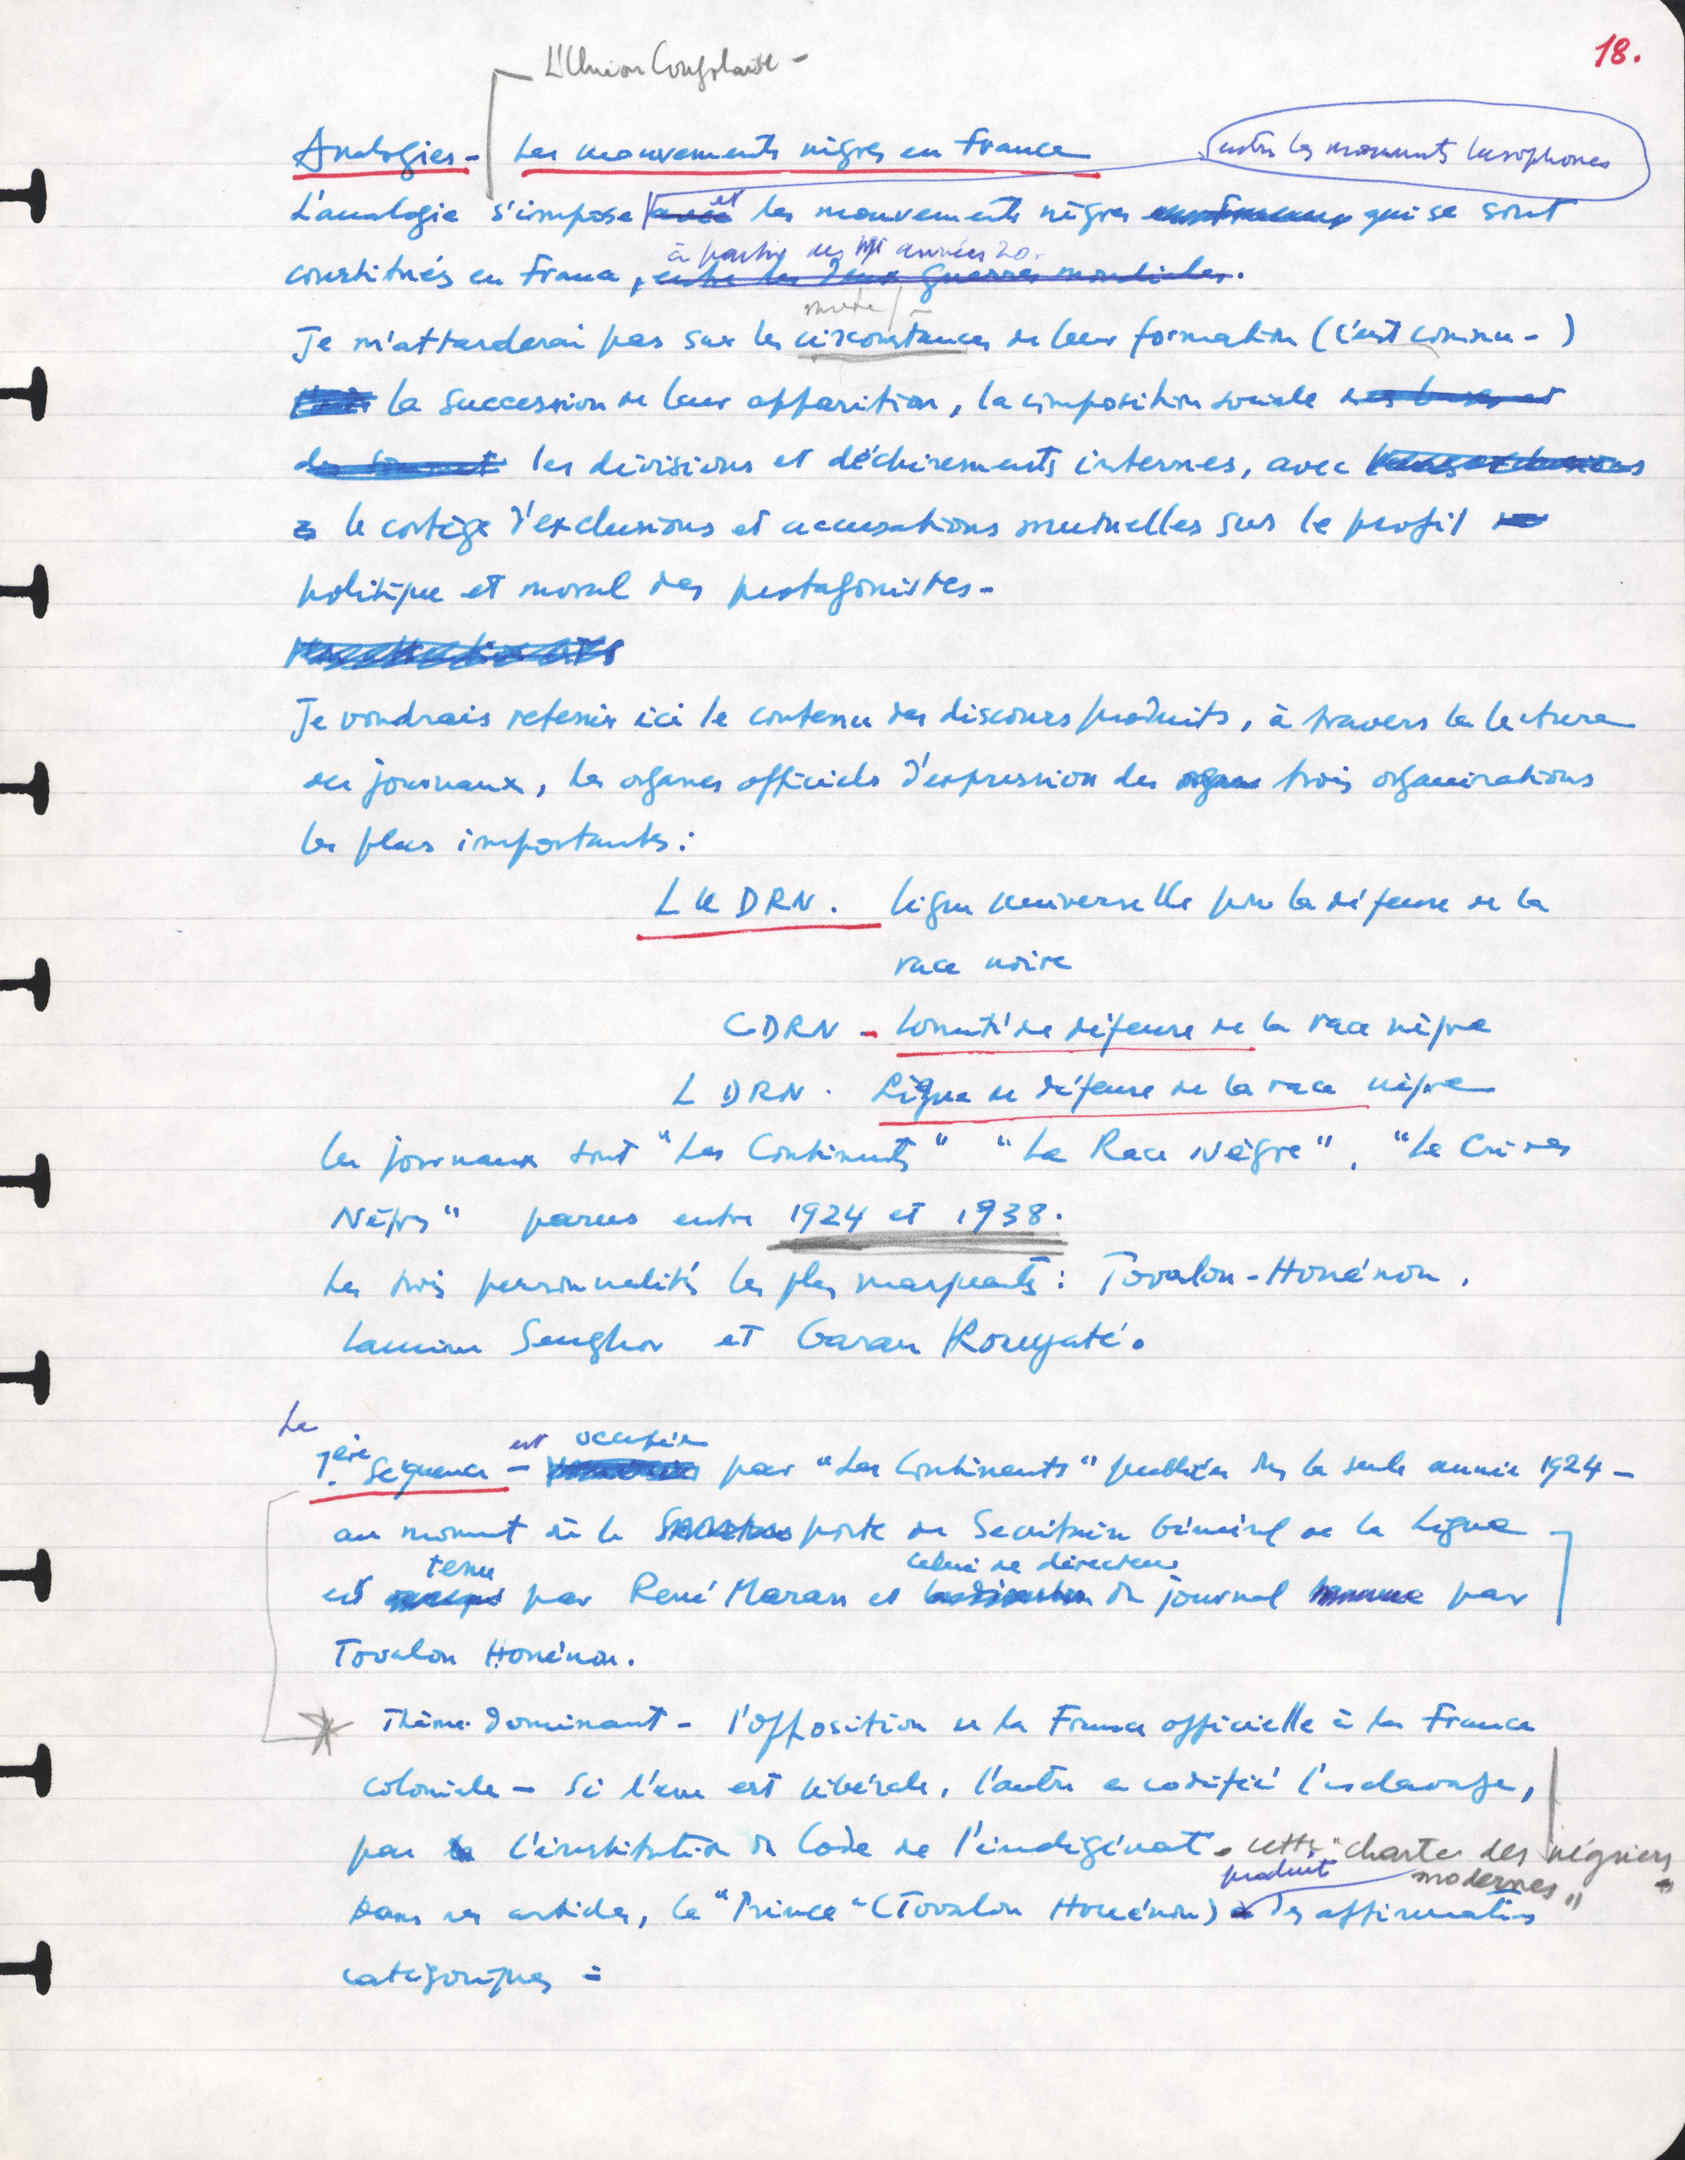 18.
L'Union Congolaise -
Analogies - Les mouvements nègres en France
entre les mouvements lusophones
L'analogie s'impose et les mouvements nègres qui se sont
à partir des années 20.
constitués en France, entre les deux guerres mondiales.
Je m'attarderai pas sur les circonstances de leur formation (c'est connu - )
la succession de leur apparition, la composition sociale des bases et
du sommet les divisions et déchirements internes, avec leurs exclusions
le cortège d'exclusions et accusations mutuelles sur le profil
politique et moral des protagonistes -
Je voudrais retenir ici le contenu des discours produits, à travers la lecture
des journaux, les organes officiels d'expression des trois organisations
les plus importantes :
LUDRN. Ligue universelle pour la défense de la
race noire
CDRN - Comité de défense de la race nègre
LDRN. Ligue de défense de la race nègre
Les journaux sont "Les Continents" "La Race Nègre", "Le Cri des
Nègres" parus entre 1924 et 1938.
Les trois personnalités les plus marquantes : Tovalou-Houénou,
Lamine Senghor et Garan Kouyaté.
La
est occupée
1ère séquence - par "Les Continents" publiés dès la seule année 1924 -
au moment où le poste de Secrétaire Général de la Ligue
tenu celui de directeur
est par René Maran et du journal par
Tovalou Houénou.
Thème dominant - l'opposition de la France officielle à la France
coloniale - Si l'une est libérale, l'autre a codifié l'esclavage,
par l'institution du Code de l'indigénat. cette "charte des négriers
produit modernes"
Dans ses articles, le "Prince" (Tovalou Houénou) des affirmations
catégoriques :